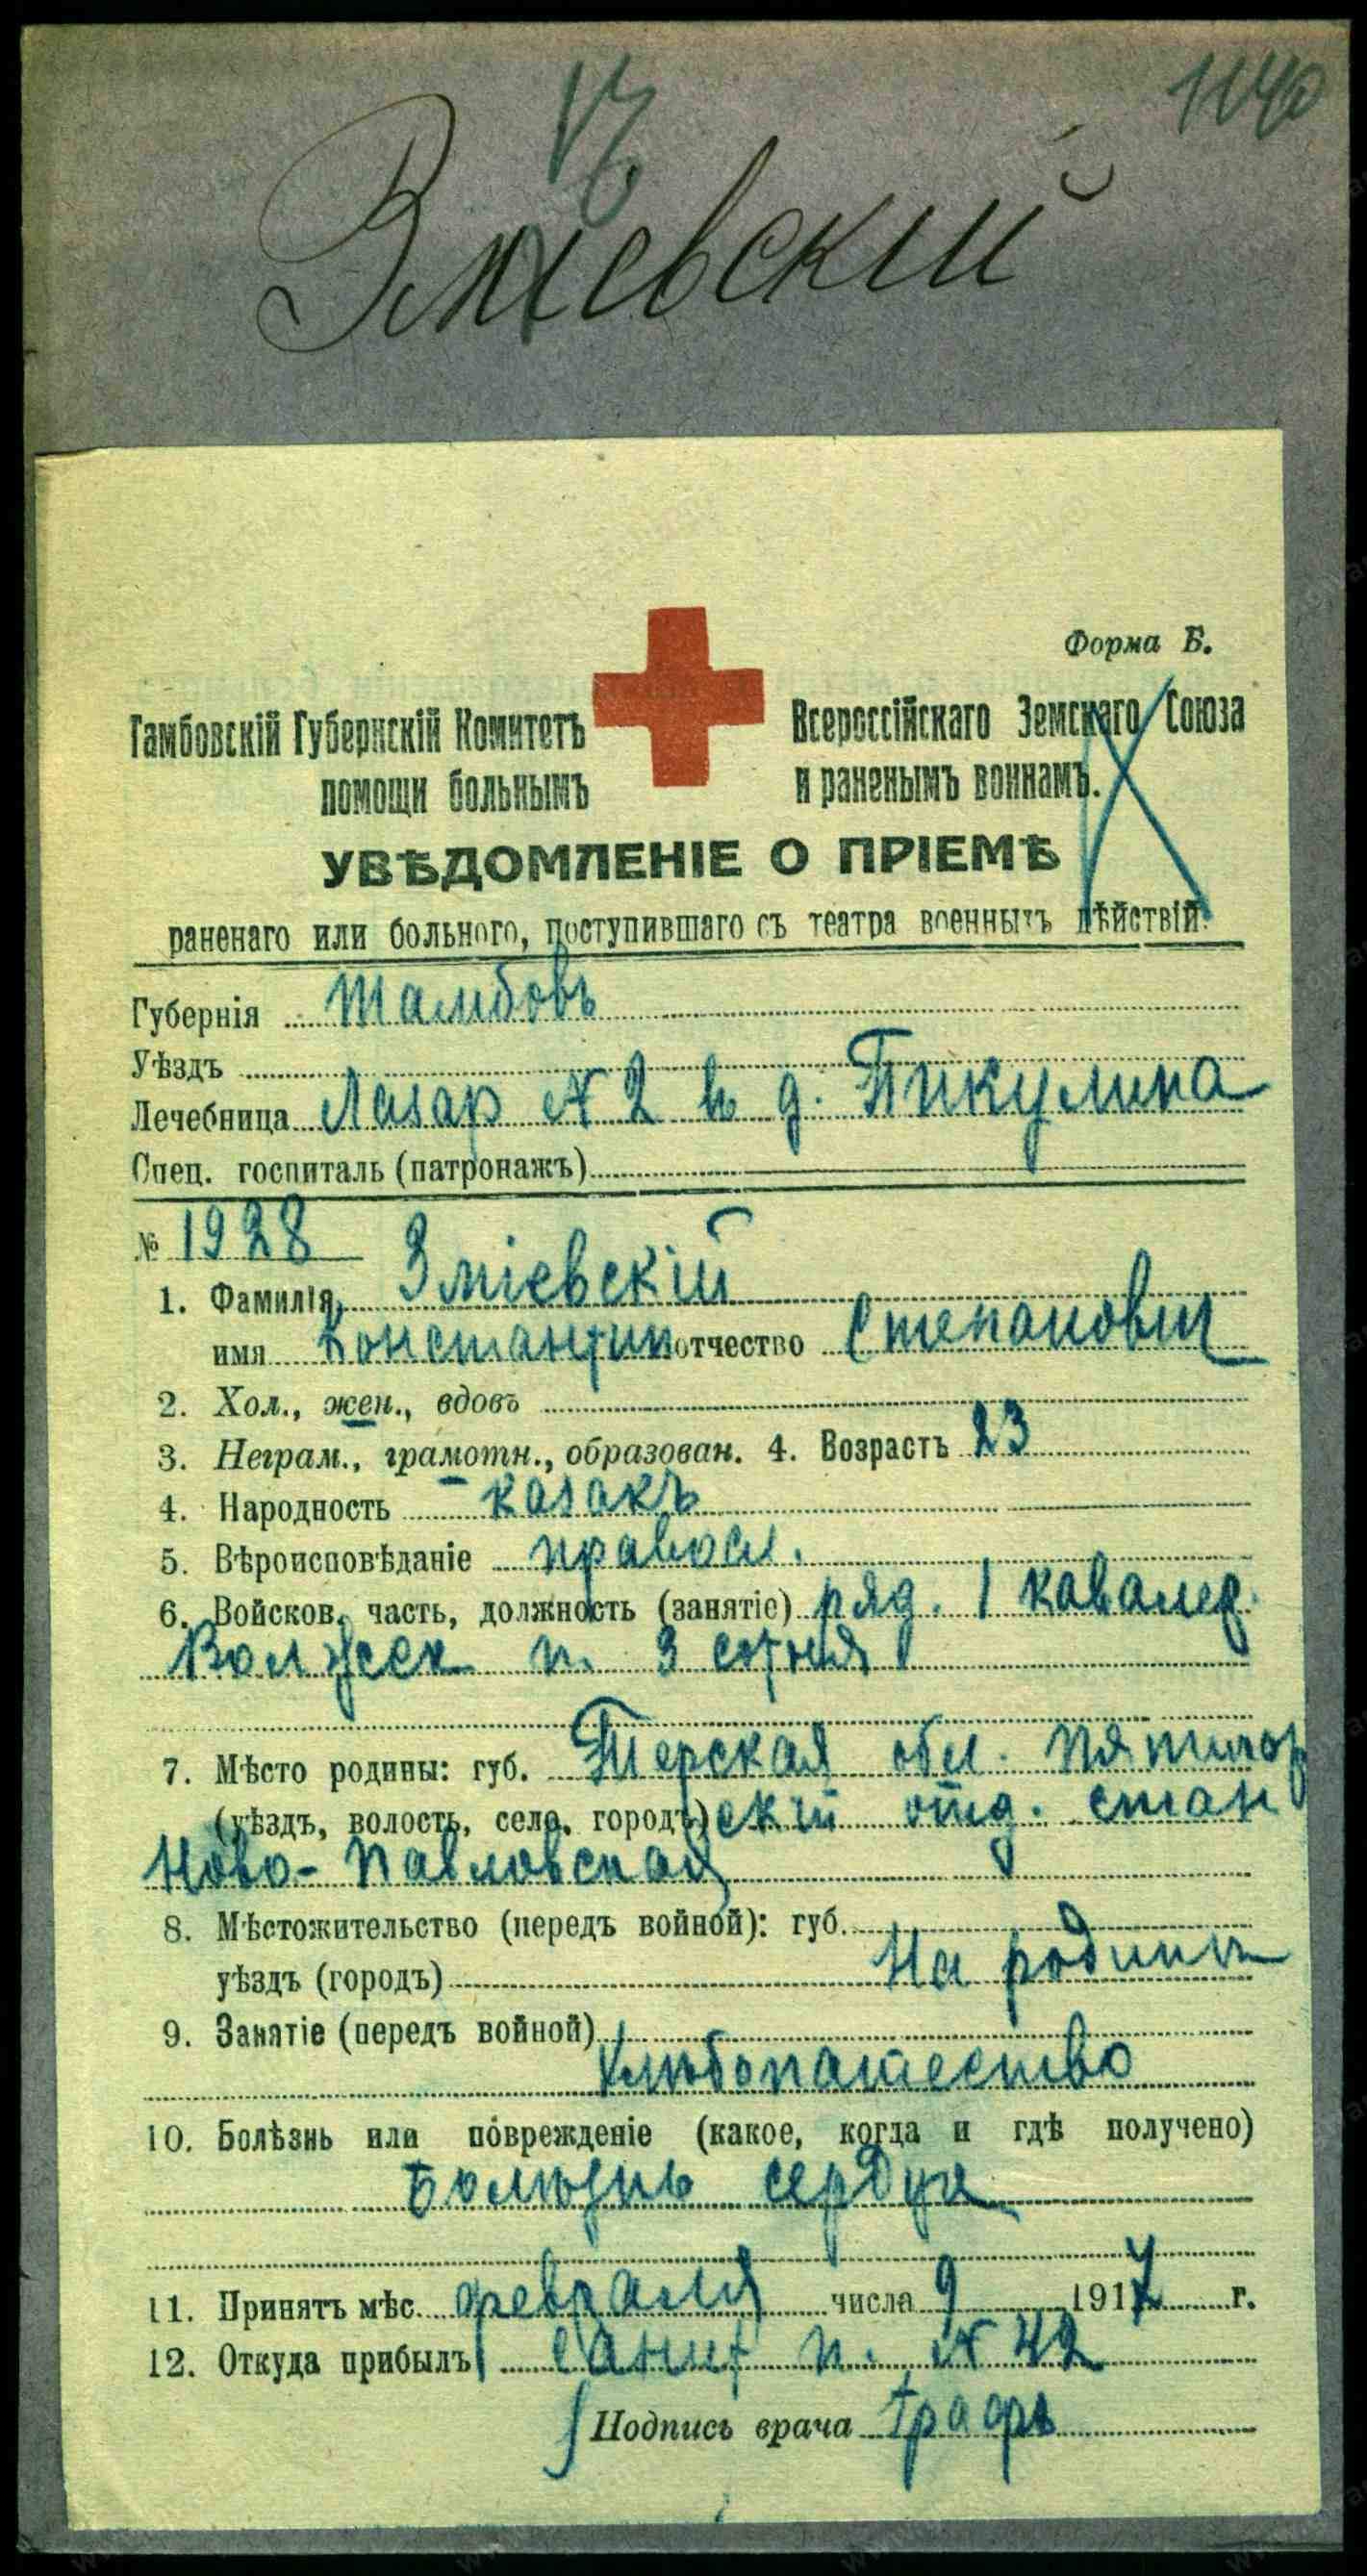 Зміевскій
Форма Б.
Тамбовскій Губернскій Комитетъ Всероссійскаго Земскаго Союза
помощи больнымъ и раненымъ воинамъ.
УВѢДОМЛЕНІЕ О ПРІЕМѢ
раненаго или больного, поступившаго съ театра военныхъ дѣйствій.
Губернія Тамбовъ
Уѣздъ
Лечебница Лазар № 2 в д. Пикулина
Спец. госпиталь (патронажъ)
№ 1928
1. Фамилія, Зміевскій
имя Константин отчество Степанович
2. Хол., жен., вдовъ
3. Неграм., грамотн., образован. 4. Возрастъ 23
4. Народность казакъ
5. Вѣроисповѣданіе правосл.
6. Войсков. часть, должность (занятіе) ряд. 1 кавалер.
Волжск п. 3 сотня
7. Мѣсто родины: губ. Терская обл. Пятигор
(уѣздъ, волость, село, городъ) скій отд. стан
Ново-Павловская
8. Мѣстожительство (передъ войной): губ.
уѣздъ (городъ) На родинѣ
9. Занятіе (передъ войной)
Хлѣбопашество
10. Болѣзнь или поврежденіе (какое, когда и гдѣ получено)
Болѣзнь сердца
11. Принятъ мѣс. февраля числа 9 1917 г.
12. Откуда прибылъ санит п. № 42
Подпись врача Графъ